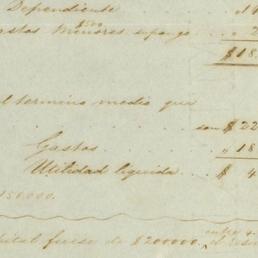 Dependiente
$500
Gastos Menores supongo
$ 18
l termino medio que
son $ 22
Gastos " 18
Utilidad liquida $ 4
150.000.
pital fuese de $200000,